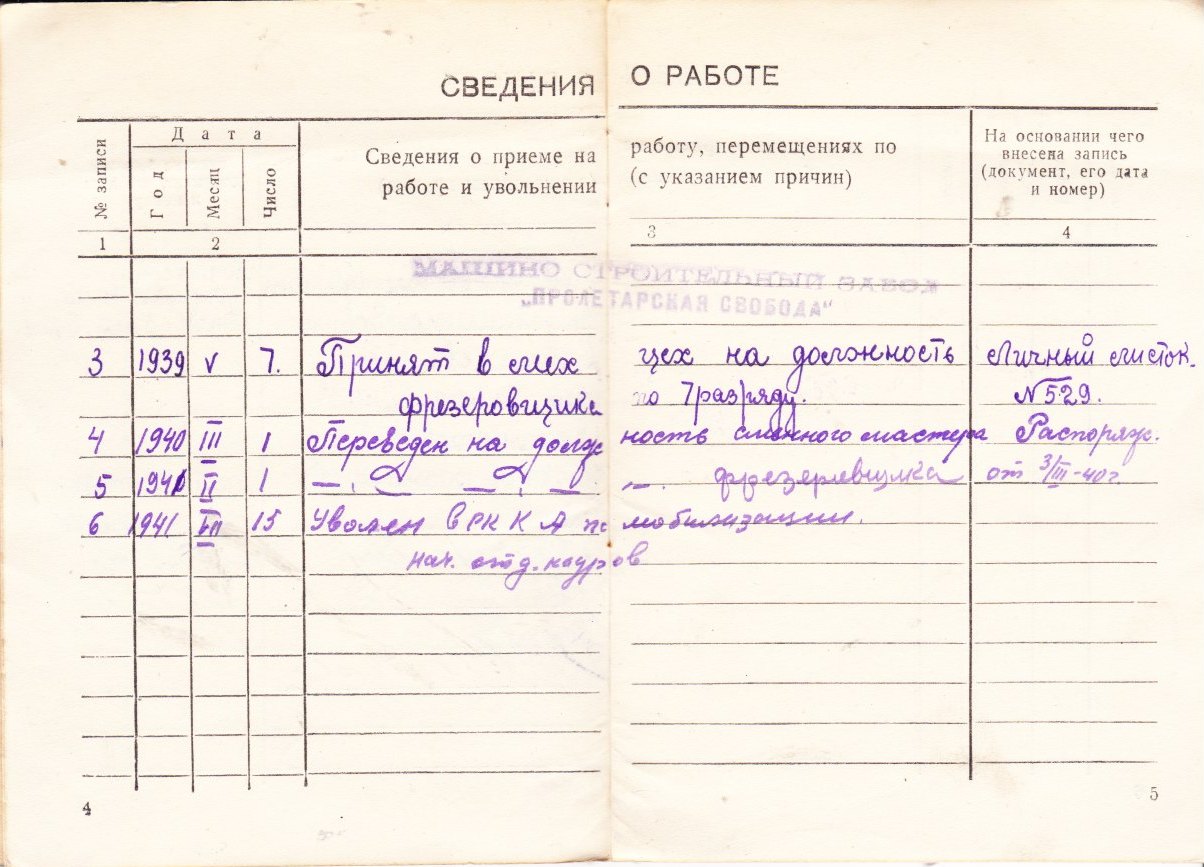 СВЕДЕНИЯ О РАБОТЕ
№ записи
Дата
Год
Месяц
Число
Сведения о приеме на работу, перемещениях по
работе и увольнении (с указанием причин)
На основании чего
внесена запись
(документ, его дата
и номер)
1 2 3 4
МАШИНО СТРОИТЕЛЬНЫЙ ЗАВОД
„ПРОЛЕТАРСКАЯ СВОБОДА"
3 1939 V 7. Принят в мех цех на должность Личный листок.
фрезеровщика по 7 разряду. № 529.
4 1940 III 1 Переведен на должность сменного мастера Распоряж.
5 1941 II 1 —„— —„— —„— фрезеровщика от 3/III-40г.
6 1941 VII 15 Уволен в РККА по мобилизации.
нач. отд. кадров
4 5